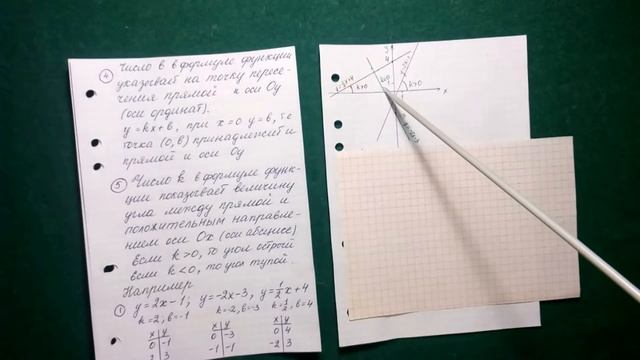 ④ Число в в формуле функции
указывает на точку пересе-
чения прямой и оси Оу
(оси ординат).
y=kx+в, при x=0 y=в, т.е
точка (0,в) принадлежит и
прямой и оси Оу
⑤ Число k в формуле функ-
ции показывает величину
угла между прямой и
положительным направле-
нием оси Ох (оси абсцисс)
если k>0, то угол острый
если k<0, то угол тупой.
Например
① y=2x-1; y=-2x-3; y=½x+4
k=2, в=-1 k=-2, в=-3 k=½, в=4
x|y x|y x|y
0|-1 0|-3 0|4
2|3 -1|-1 -2|3
5
4
k>0
k>0
x